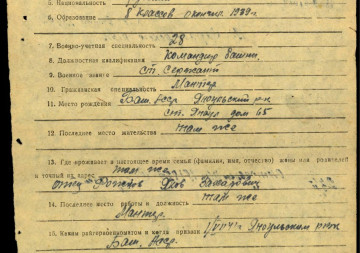 5. Национальность
6. Образование 8 классов окончил 1939 г.
7. Военно-учетная специальность 28
8. Должностная квалификация Командир башни
9. Военное звание Ст. Сержант
10. Гражданская специальность Мантер
11. Место рождения Баш. АССР Дюртюльский р-н
дом 65
12. Последнее место жительства там же
13. Где проживает в настоящее время семья (фамилия, имя, отчество) жены или родителей
и точный их адрес там же
отец
14. Последнее место работы и должность там же
Мантер
15. Каким райгорвоенкоматом и когда призван
Баш. Асср.